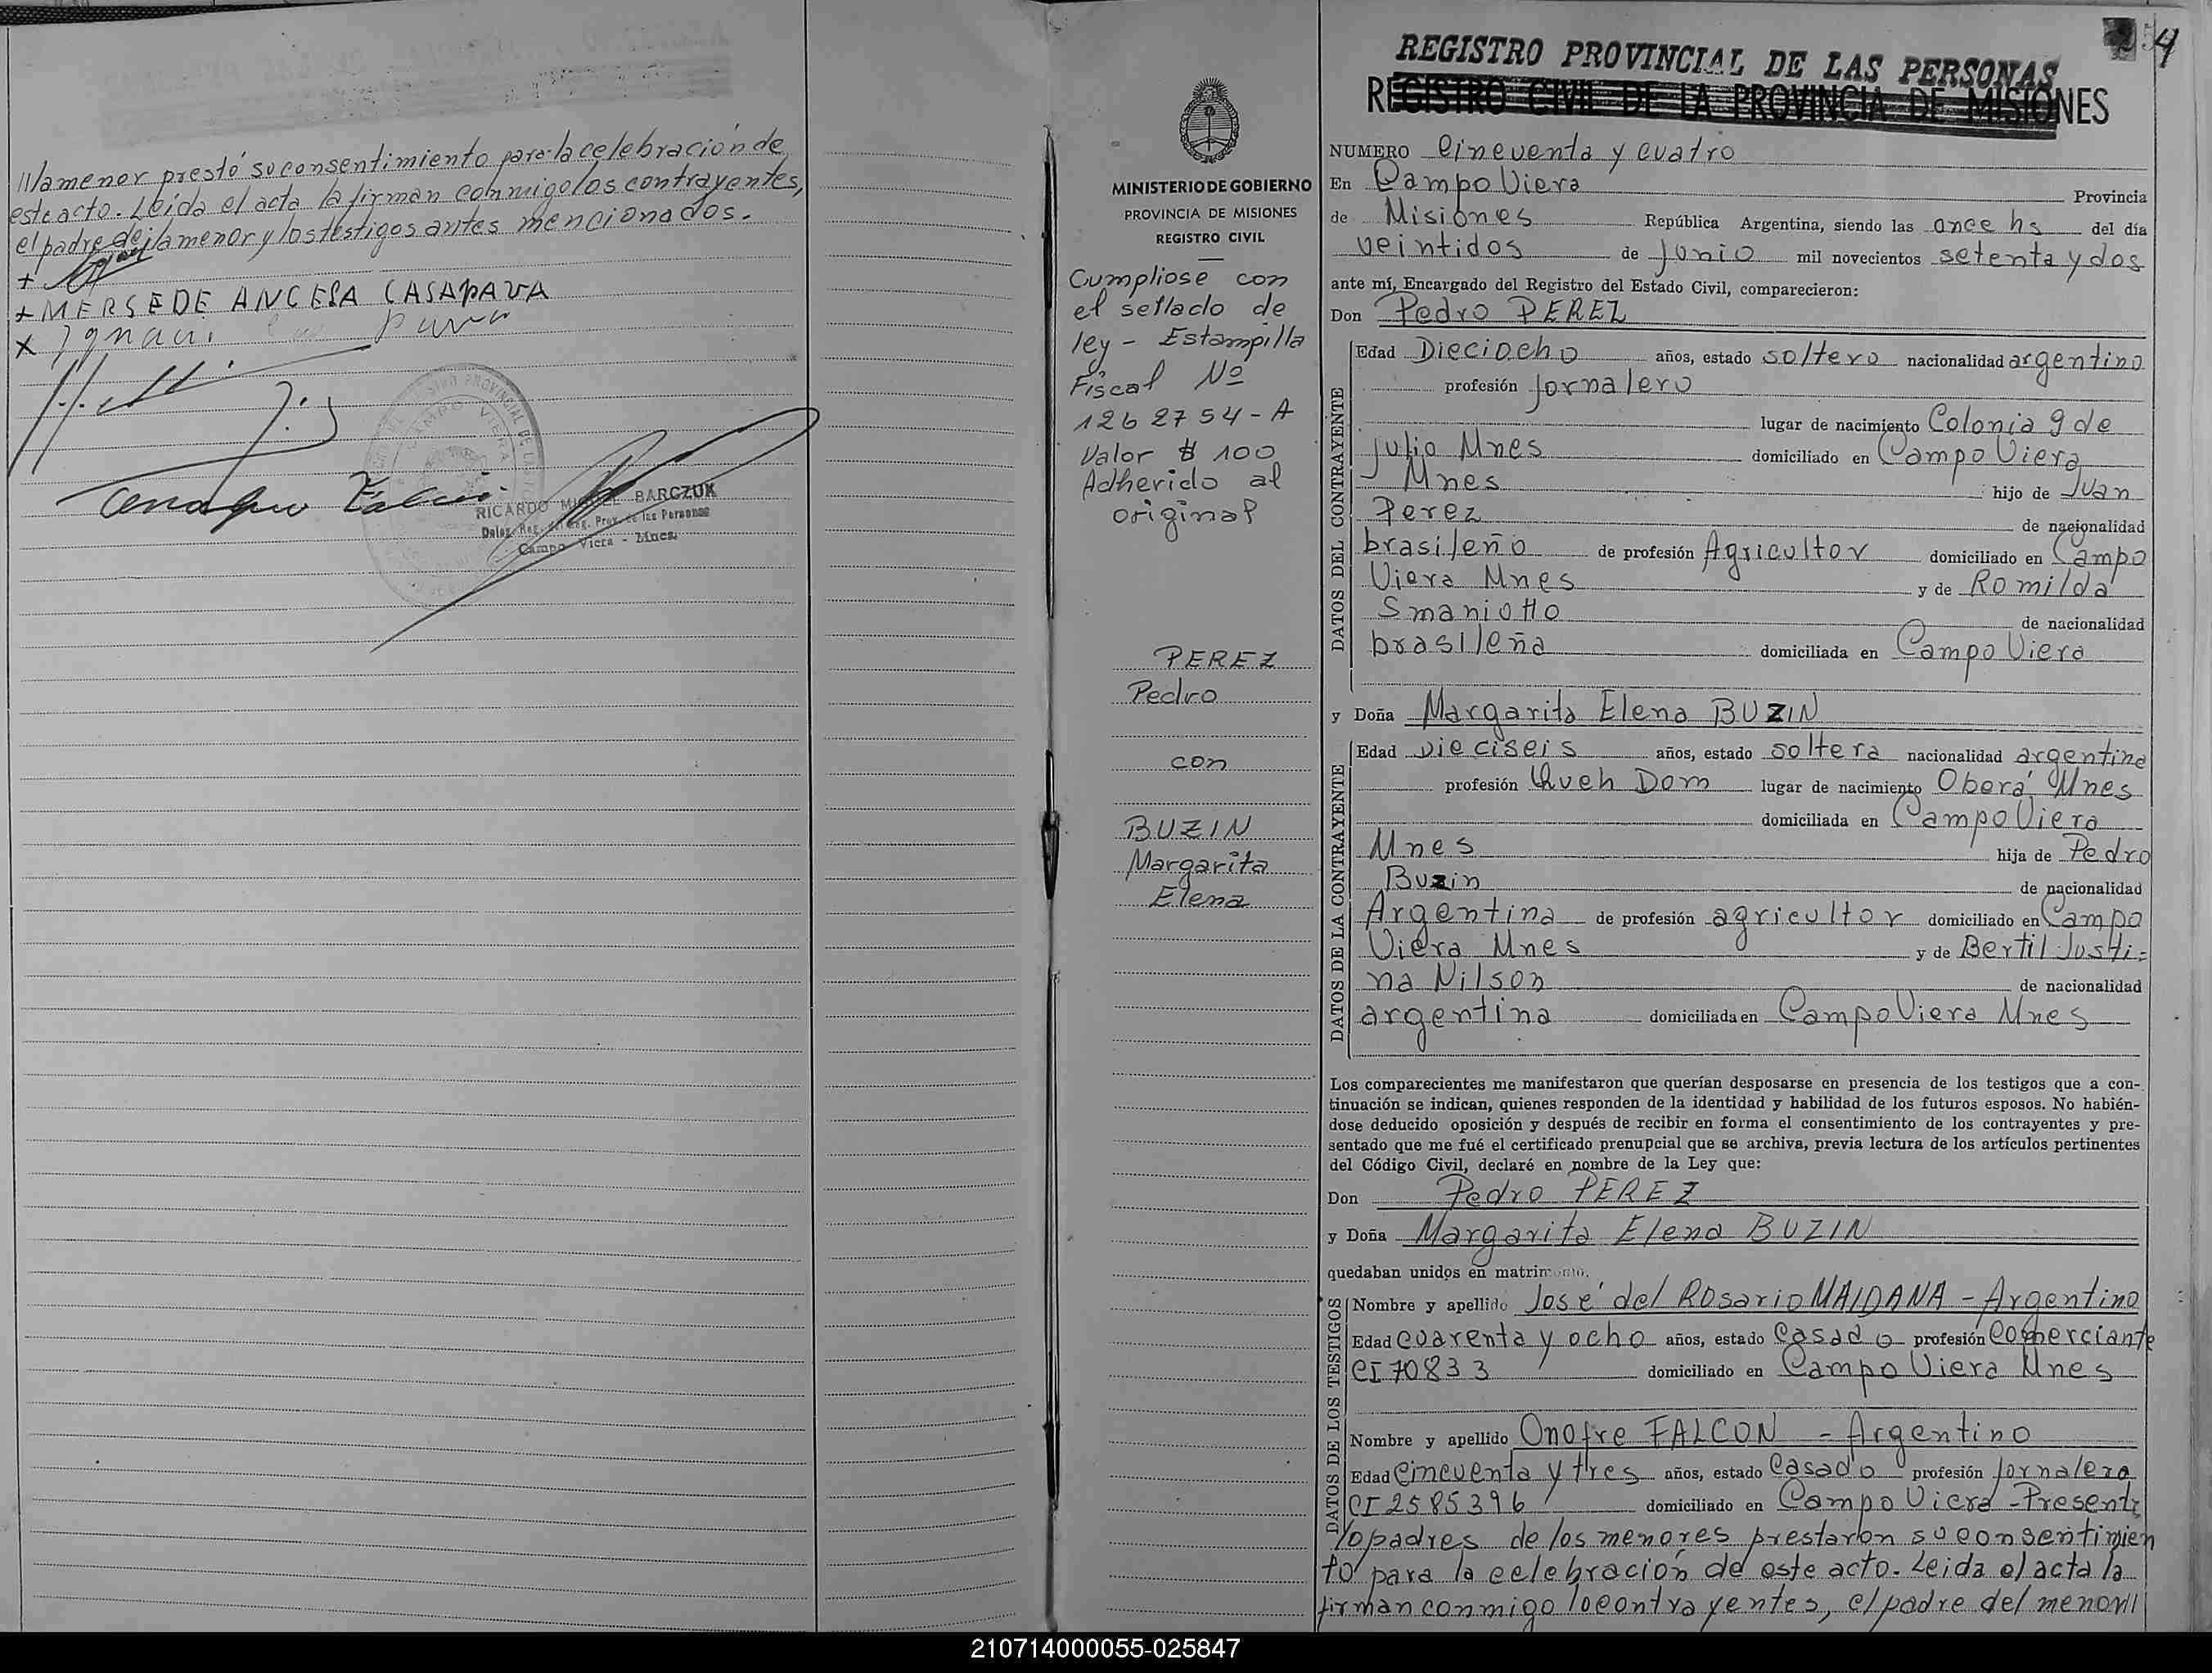 ///la menor prestó su consentimiento para la celebración de
este acto. Leida el acta la firman conmigo los contrayentes,
el padre de la menor y los testigos antes mencionados.-
+
+ MERSEDE ANCELA CASAPAVA
x Ignaci
CAMPO VIERA
RICARDO MIGUEL BARCZUK
Deleg. Reg. del Reg. Prov. de las Personas
Campo Viera - Mnes.
MINISTERIO DE GOBIERNO
PROVINCIA DE MISIONES
REGISTRO CIVIL
Cumpliose con
el sellado de
ley - Estampilla
Fiscal Nº
1262754-A
Valor $ 100
Adherido al
original
PEREZ
Pedro
con
BUZIN
Margarita
Elena
54
REGISTRO PROVINCIAL DE LAS PERSONAS
REGISTRO CIVIL DE LA PROVINCIA DE MISIONES
NUMERO Cincuenta y cuatro
En Campo Viera Provincia
de Misiones República Argentina, siendo las once hs del día
veintidos de Junio mil novecientos setenta y dos
ante mí, Encargado del Registro del Estado Civil, comparecieron:
Don Pedro PEREZ
DATOS DEL CONTRAYENTE
Edad Dieciocho años, estado soltero nacionalidad argentino
profesión Jornalero
lugar de nacimiento Colonia 9 de
Julio Mnes domiciliado en Campo Viera
Mnes hijo de Juan
Perez de nacionalidad
brasileño de profesión Agricultor domiciliado en Campo
Viera Mnes y de Romilda
Smaniotto de nacionalidad
brasileña domiciliada en Campo Viera
y Doña Margarita Elena BUZIN
DATOS DE LA CONTRAYENTE
Edad Dieciseis años, estado soltera nacionalidad argentina
profesión Queh Dom lugar de nacimiento Oberá Mnes
domiciliada en Campo Viera
Mnes hija de Pedro
Buzin de nacionalidad
Argentina de profesión agricultor domiciliado en Campo
Viera Mnes y de Bertil Justi=
na Nilson de nacionalidad
argentina domiciliada en Campo Viera Mnes
Los comparecientes me manifestaron que querían desposarse en presencia de los testigos que a con-
tinuación se indican, quienes responden de la identidad y habilidad de los futuros esposos. No habién-
dose deducido oposición y después de recibir en forma el consentimiento de los contrayentes y pre-
sentado que me fué el certificado prenupcial que se archiva, previa lectura de los artículos pertinentes
del Código Civil, declaré en nombre de la Ley que:
Don Pedro PEREZ
y Doña Margarita Elena BUZIN
quedaban unidos en matrimonio.
DATOS DE LOS TESTIGOS
Nombre y apellido José del Rosario MAIDANA - Argentino
Edad cuarenta y ocho años, estado Casado profesión Comerciante
CI 70833 domiciliado en Campo Viera Mnes
Nombre y apellido Onofre FALCON - Argentino
Edad Cincuenta y tres años, estado Casado profesión Jornalero
CI 2585396 domiciliado en Campo Viera - Presente
lo padres de los menores prestaron su consentimien
to para la celebración de este acto. Leida el acta la
firman conmigo lo contrayentes, el padre del menor//
210714000055-025847